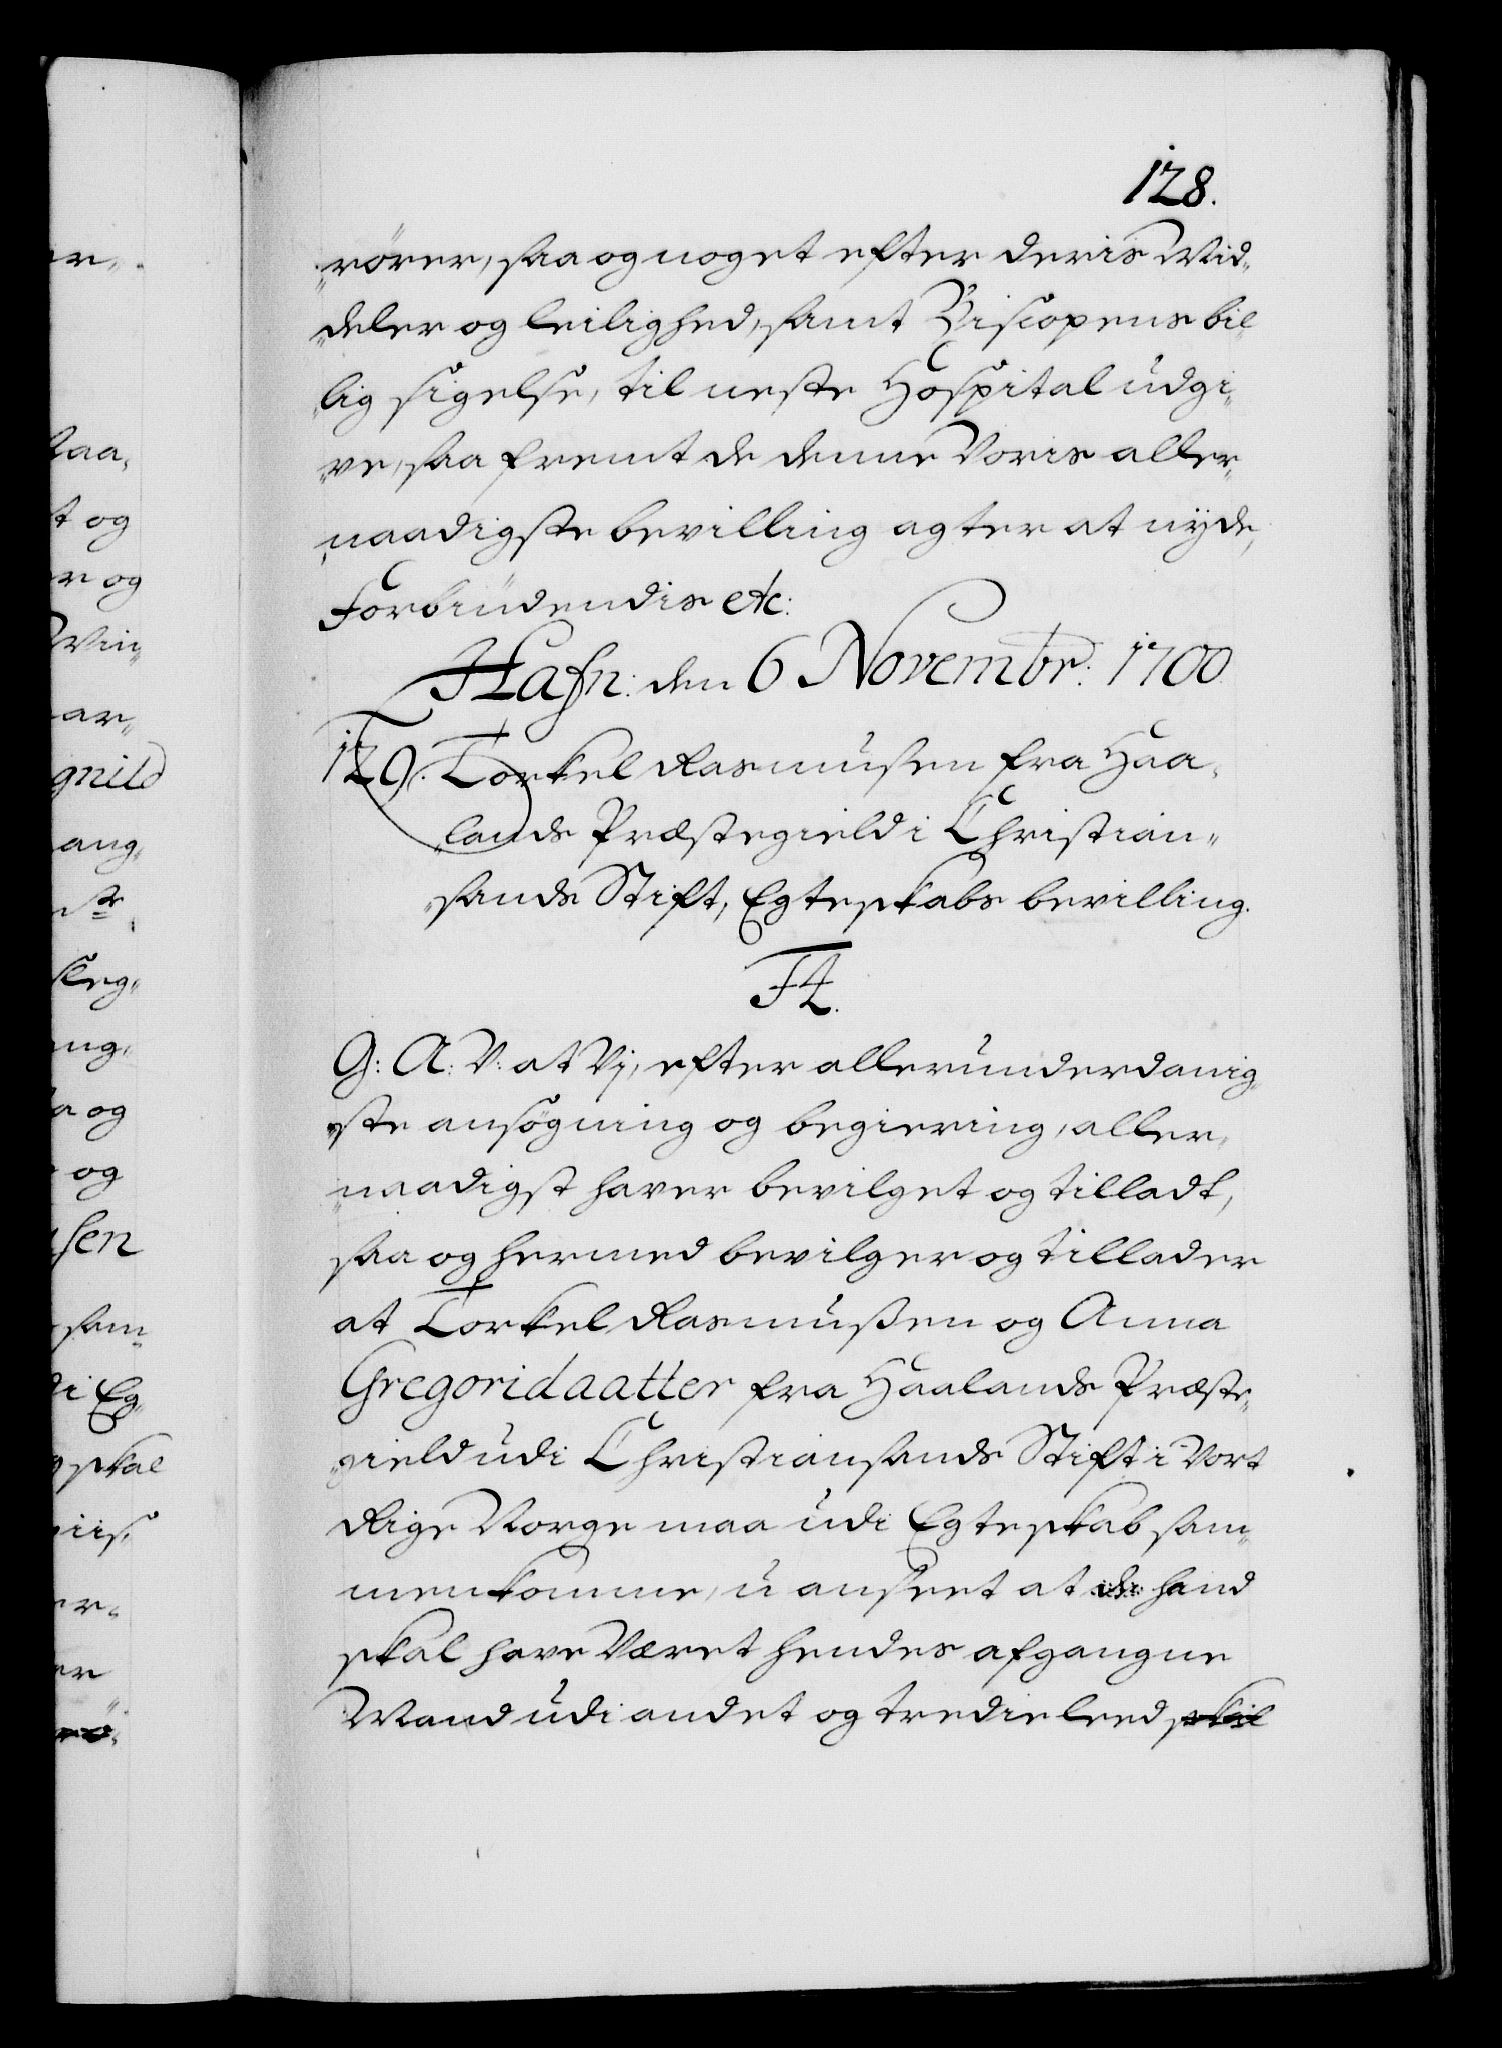 128.
„rörer, saa og noget efter deris Mid„
„deler og leilighed, samt Biscopens bil„
„lig sigelse, til neste Hospital udgi„
„ve, saa fremt de denne Voris aller„
„naadigste bevilling agter at nyde,
Forbiudendis etc:
Hafn: den 6 Novembr: 1700
129. Torkel Rasmusen fra Haa„
„lands Præstegield i Christian„
„sands Stift, Egteskabs bevilling.
F4.
G: A: V: at Vj, efter allerunderdanig„
„ste ansögning og begiering, aller„
„naadigst haver bevilget og tilladt,
saa og hermed bevilger og tillader
at Torkel Rasmußen og Anna
Gregoridaatter fra Haalands Præste„
„gield udi Christiansands Stift i Vort
Rige Norge maa udi Egteskab sam„
menkomme, u anseet at de hand
skal have Været hendes afgangne
Mand udi andet og tredie leed skil
er„
Raa„
t og
er og
Win„
ar„
gnild
ang„
skeg„
ng„
a og
og
sen
sam„
di Eg„
skal
viis„
er„
er